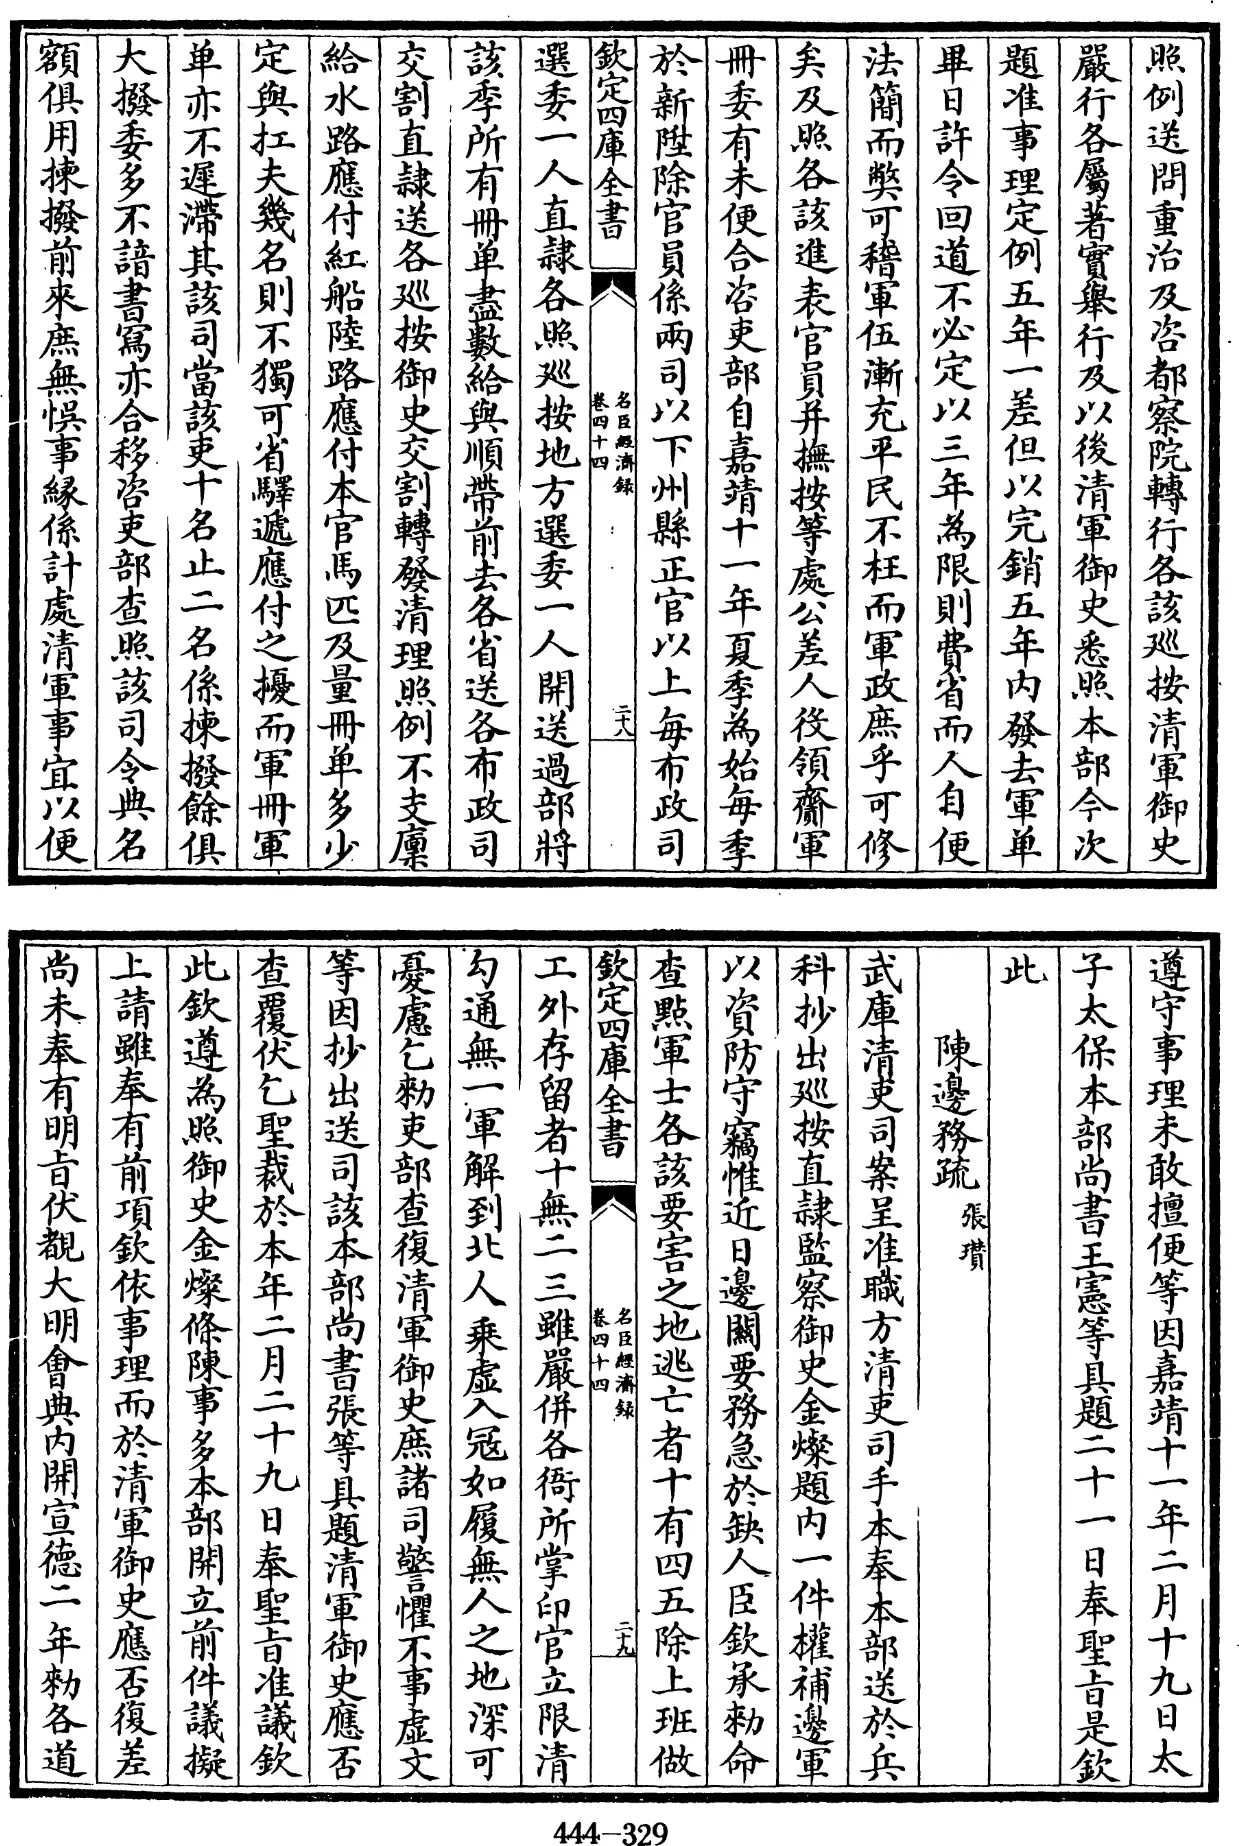 照例送問重治及咨都察院轉行各該巡按清軍御史
嚴行各屬著實舉行及以後清軍御史悉照本部今次
題准事理定例五年一差但以完銷五年內發去軍单
畢日許令回道不必定以三年為限則費省而人自便
法簡而弊可稽軍伍漸充平民不枉而軍政庶乎可修
矣及照各該進表官員并撫按等處公差人役領齎軍
冊委有未便合咨吏部自嘉靖十一年夏季為始每季
於新陞除官員係兩司以下州縣正官以上每布政司
欽定四庫全書
名臣經濟録
卷四十四
二十八
選委一人直隸各照巡按地方選委一人開送過部將
該季所有冊单盡數給與順帶前去各省送各布政司
交割直隸送各巡按御史交割轉發清理照例不支廪
給水路應付紅船陸路應付本官馬匹及量冊单多少
定與扛夫幾名則不獨可省驛遞應付之擾而軍冊軍
单亦不遲滯其該司當該吏十名止二名係揀撥餘俱
大撥委多不諳書寫亦合移咨吏部查照該司令典名
額俱用揀撥前來庶無悞事緣係計處清軍事宜以便
遵守事理未敢擅便等因嘉靖十一年二月十九日太
子太保本部尚書王憲等具題二十一日奉聖旨是欽
此
陳邊務疏 張瓚
武庫清吏司案呈准職方清吏司手本奉本部送於兵
科抄出巡按直隸監察御史金燦題内一件權補邊軍
以資防守竊惟近日邊關要務急於缺人臣欽承勅命
查點軍士各該要害之地逃亡者十有四五除上班做
欽定四庫全書
名臣經濟録
卷四十四
二十九
工外存留者十無二三雖嚴併各衙所掌印官立限清
勾通無一軍解到北人乘虛入冦如履無人之地深可
憂慮乞勅吏部查復清軍御史庶諸司警懼不事虛文
等因抄出送司該本部尚書張等具題清軍御史應否
查覆伏乞聖裁於本年二月二十九日奉聖旨准議欽
此欽遵為照御史金燦條陳事多本部開立前件議擬
上請雖奉有前項欽依事理而於清軍御史應否復差
尚未奉有明旨伏覩大明會典内開宣德二年勅各道
444-329